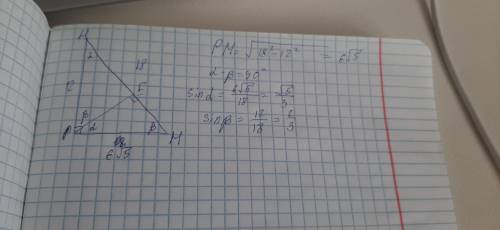 H
α
18
12
E
β
P
α
β
M
6√5
PM = √18² - 12² = 6√5
α + β = 90°
sin α = 6√5/18 = √5/3
sin β = 12/18 = 2/3